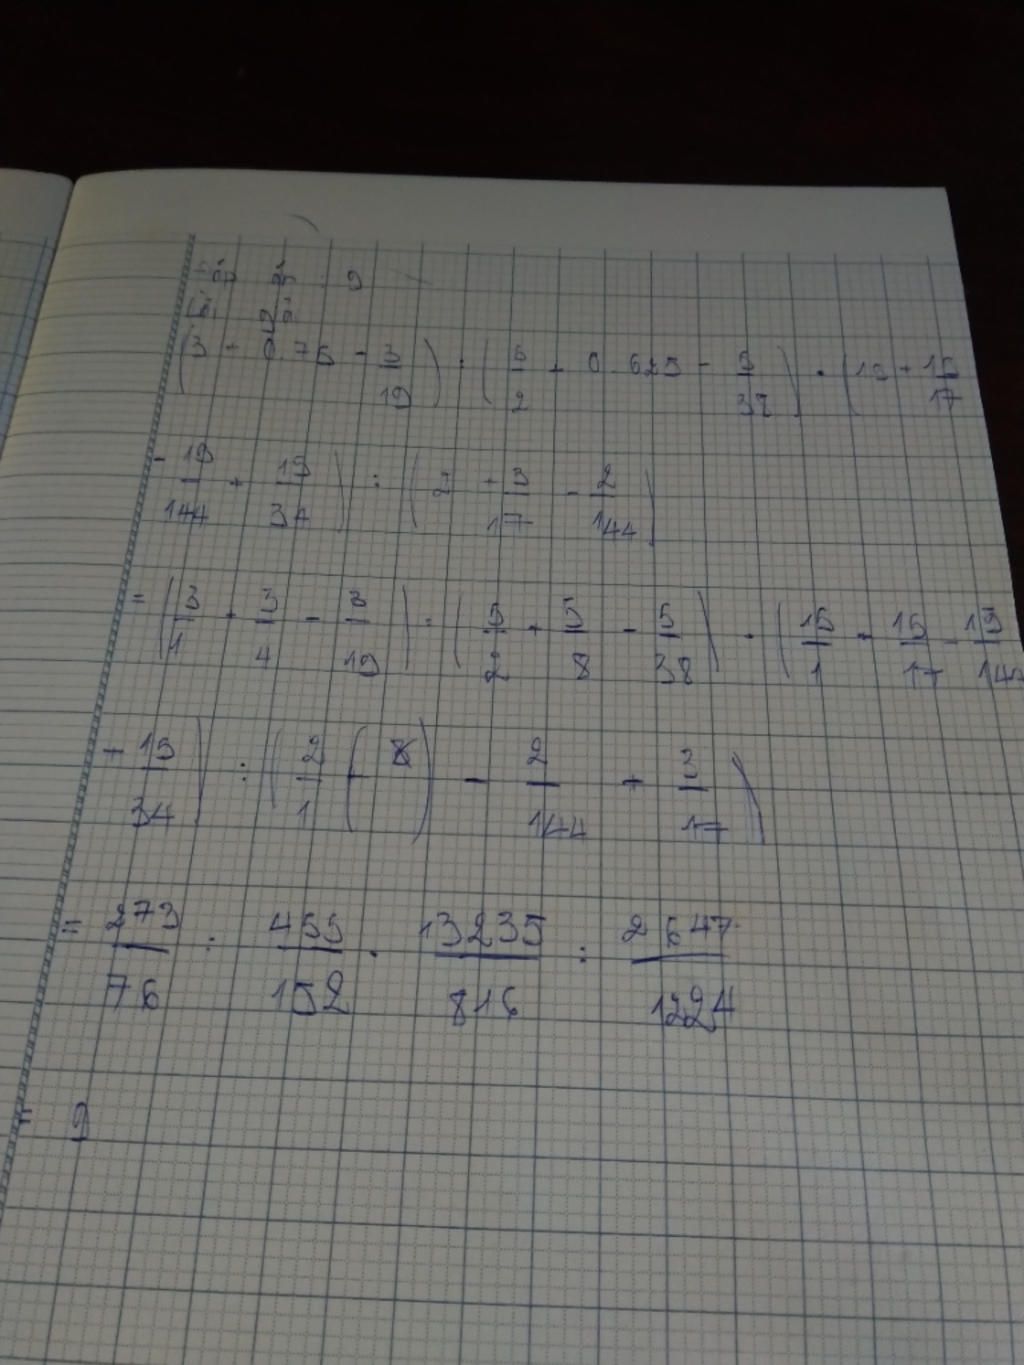 Đáp số : 9
Lời giải
(3 + 0.75 - 3/19) : (5/2 + 0.625 - 5/38) . (15 + 15/17
- 15/144 + 15/34) : (2 + 3/17 - 2/144)
= (3/1 + 3/4 - 3/19) : (5/2 + 5/8 - 5/38) . (15/1 + 15/17 - 15/144
+ 15/34) : (2/1 - 2/144 + 3/17)
= 273/76 : 455/152 . 13235/816 : 2647/1224
= 9